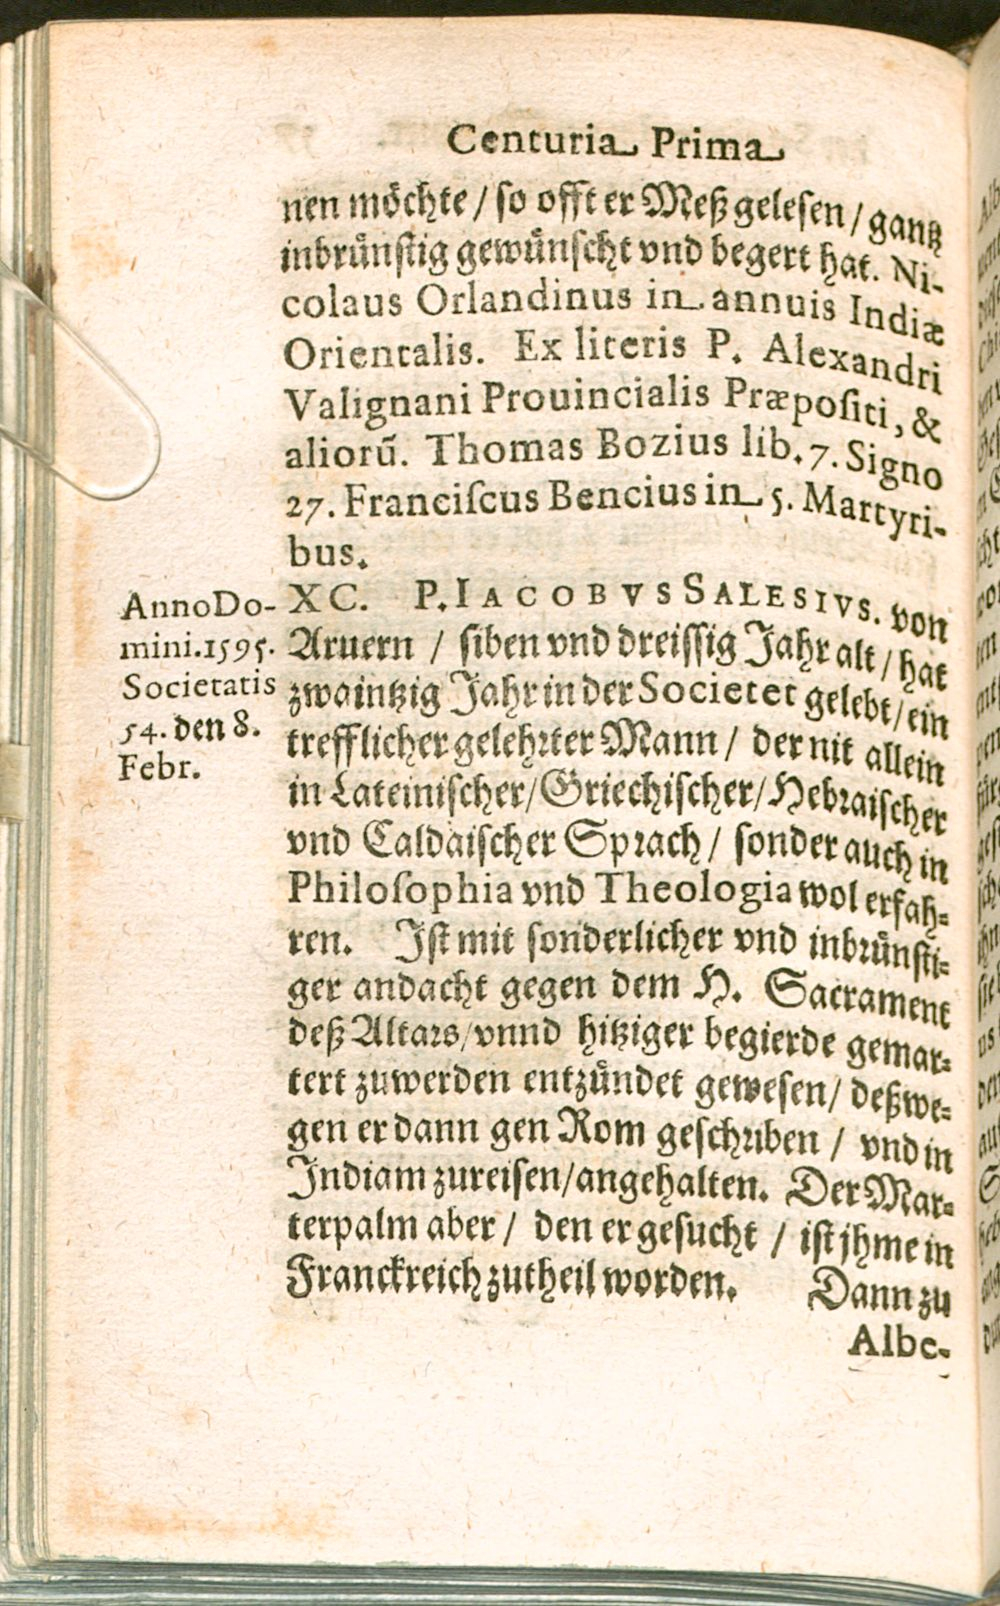 Centuria Prima
nen möchte / so offt er Meß gelesen / gantz
inbrünstig gewünscht vnd begert hat. Ni-
colaus Orlandinus in annuis Indiæ
Orientalis. Ex literis P. Alexandri
Valignani Prouincialis Præpositi, &
aliorũ. Thomas Bozius lib. 7. Signo
27. Franciscus Bencius in 5. Martyri-
bus.
XC. P. IACOBVS SALESIVS. von
Aruern / siben vnd dreissig Jahr alt / hat
zwaintzig Jahr in der Societet gelebt / ein
trefflicher gelehrter Mann / der nit allein
in Lateinischer / Griechischer / Hebraischer
vnd Caldaischer Sprach / sonder auch in
Philosophia vnd Theologia wol erfah-
ren. Ist mit sonderlicher vnd inbrünsti-
ger andacht gegen dem H. Sacrament
deß Altars / vnnd hitziger begierde gemar-
tert zuwerden entzündet gewesen / deßwe-
gen er dann gen Rom geschriben / vnd in
Indiam zureisen / angehalten. Der Mar-
terpalm aber / den er gesucht / ist jhme in
Franckreich zutheil worden. Dann zu
Albe-
Anno Do-
mini. 1595.
Societatis
54. den 8.
Febr.